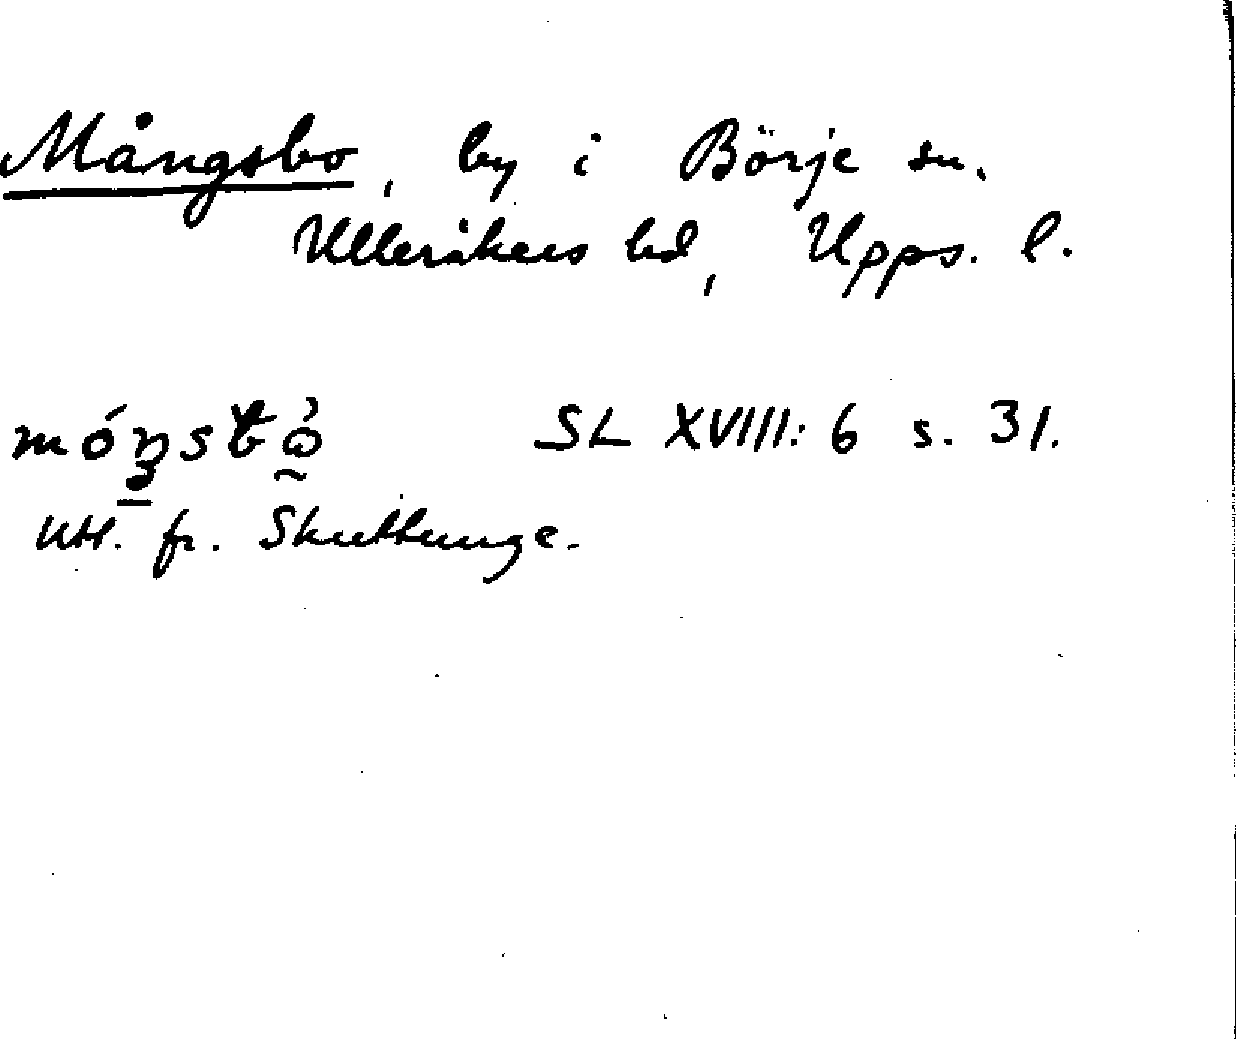 Mångsbo, by i Börje sn.
Ulleråkers hd, Upps. l.
SL XVIII: 6 s. 31.
utt. fr. Skuttunge.